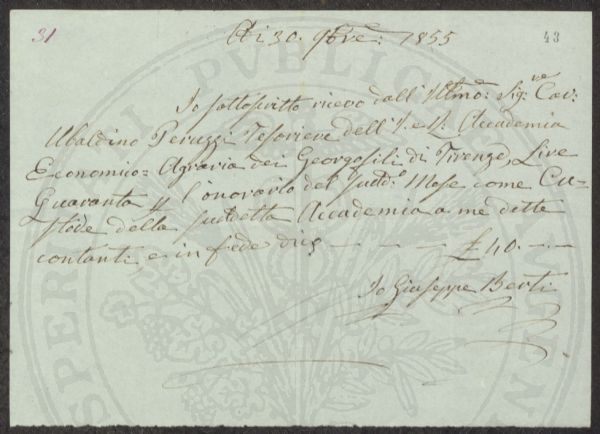 31
43
A di 30. 9bre: 1855
Io sottoscritto ricevo dall'Illmo: Sigre: Cav:
Ubaldino Peruzzi Tesoriere dell'I. e R. Accademia
Economico=Agraria dei Georgofili di Firenze Lire
Quaranta p l'onorario del sudd.o Mese come Cu=
stode della suddetta Accademia a me dette
contanti e in fede dico - - - - £ 40. - -
Io Giuseppe Berti
PROSPERITATI PUBLICAE AUGENDAE